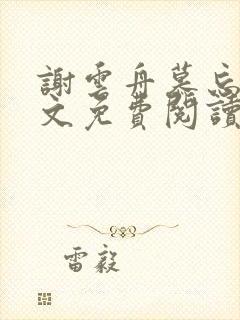 謝雲舟慕忘
文免費閱讀
雷毅